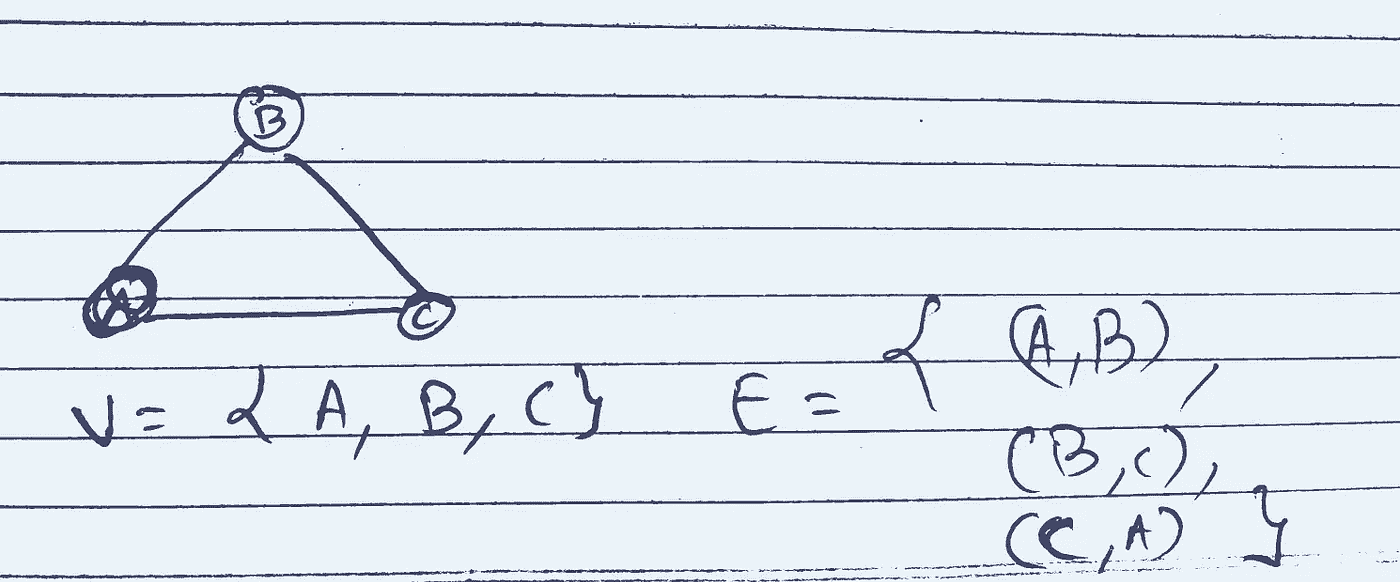 B
A
C
V = { A, B, C} E = { (A,B),
(B,C),
(C,A) }